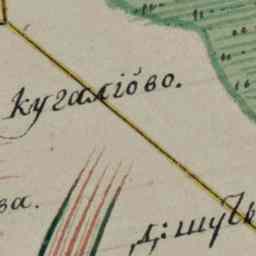 Кугаліово.
ва.
д: шуѣ